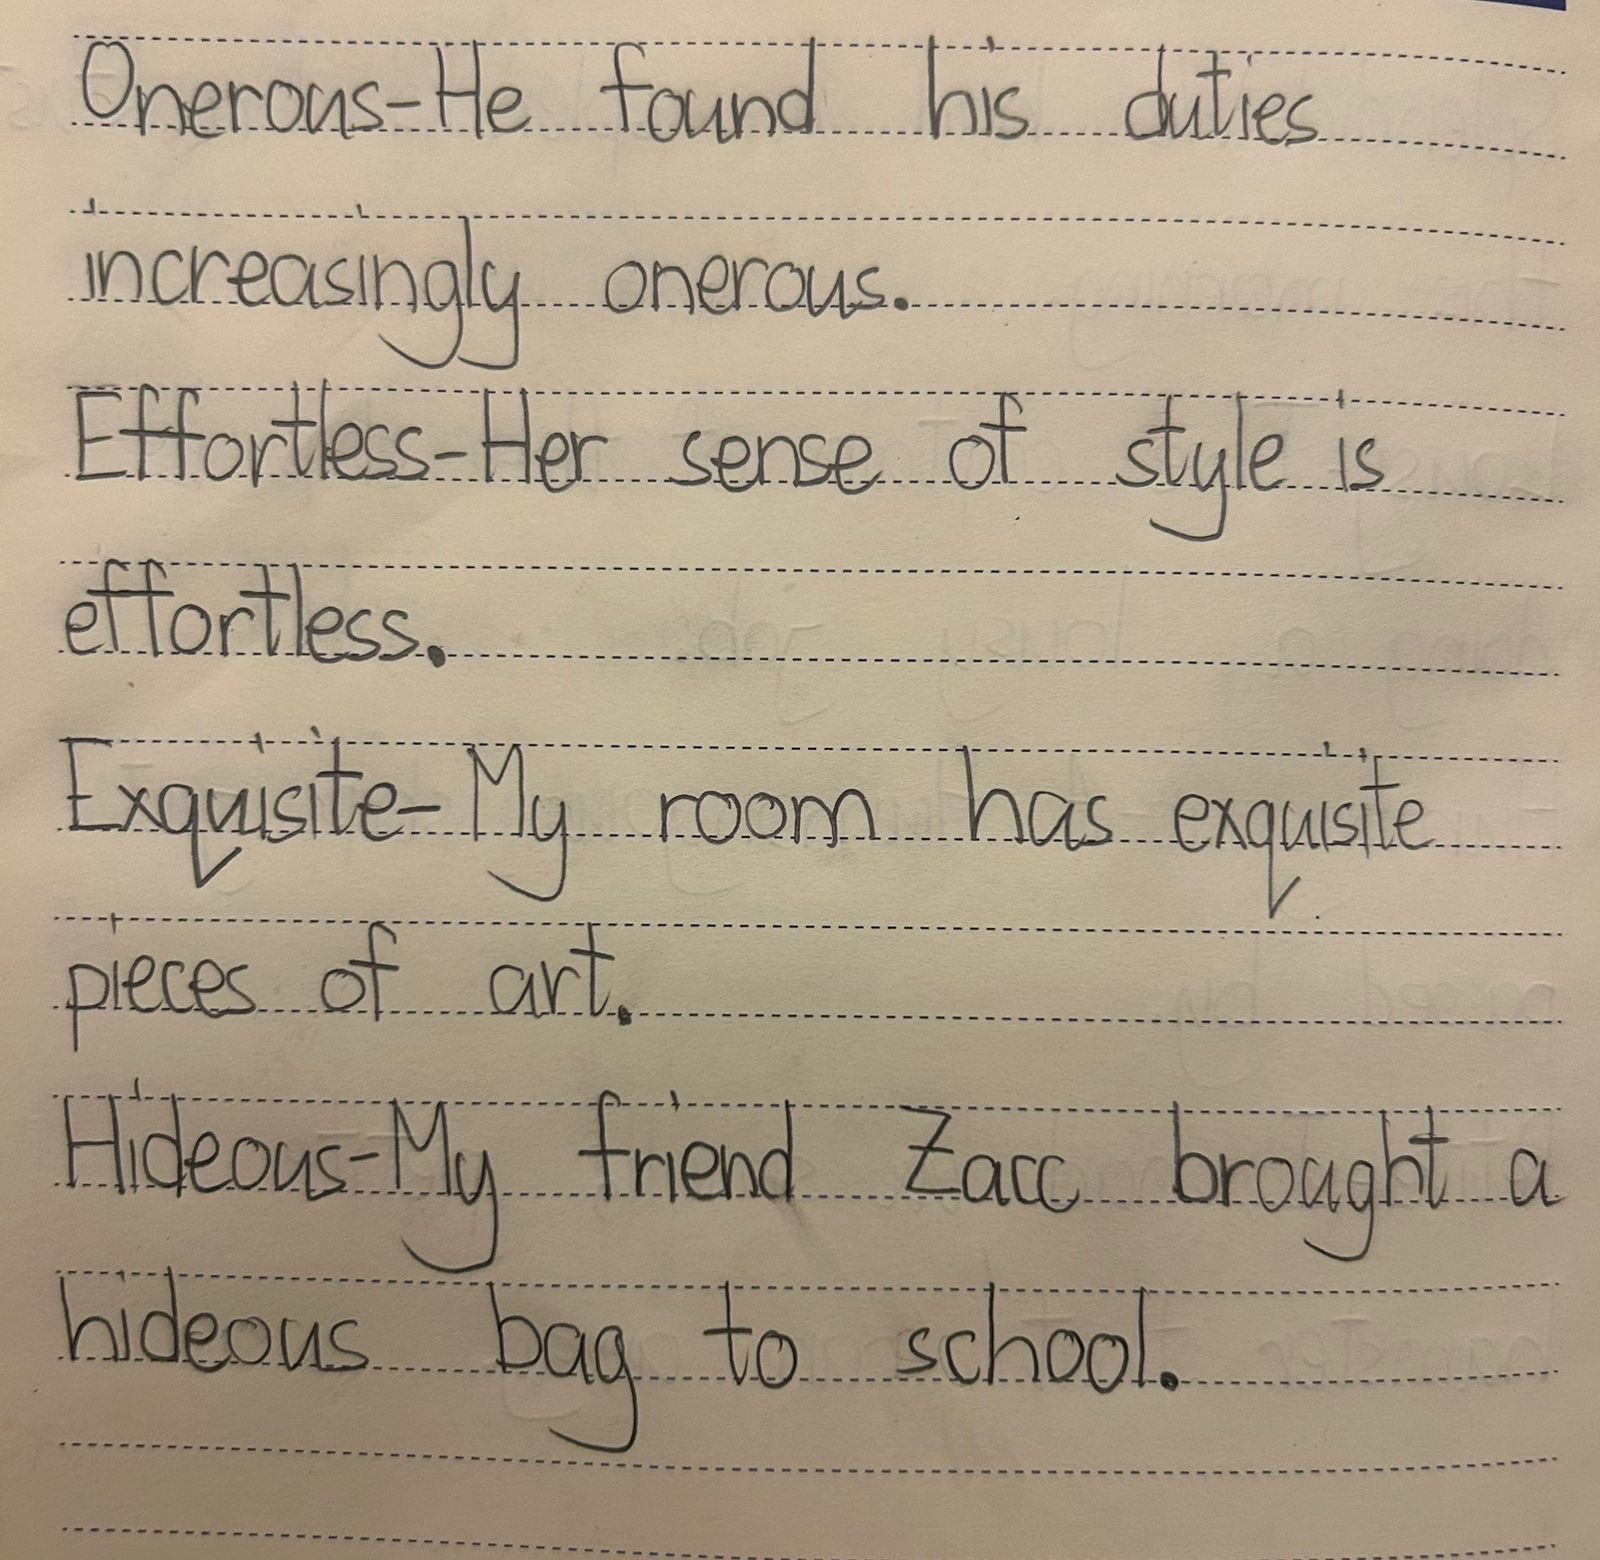 Onerous-He found his duties
increasingly onerous.
Effortless-Her sense of style is
effortless.
Exquisite-My room has exquisite
pieces of art.
Hideous-My friend Zacc brought a
hideous bag to school.